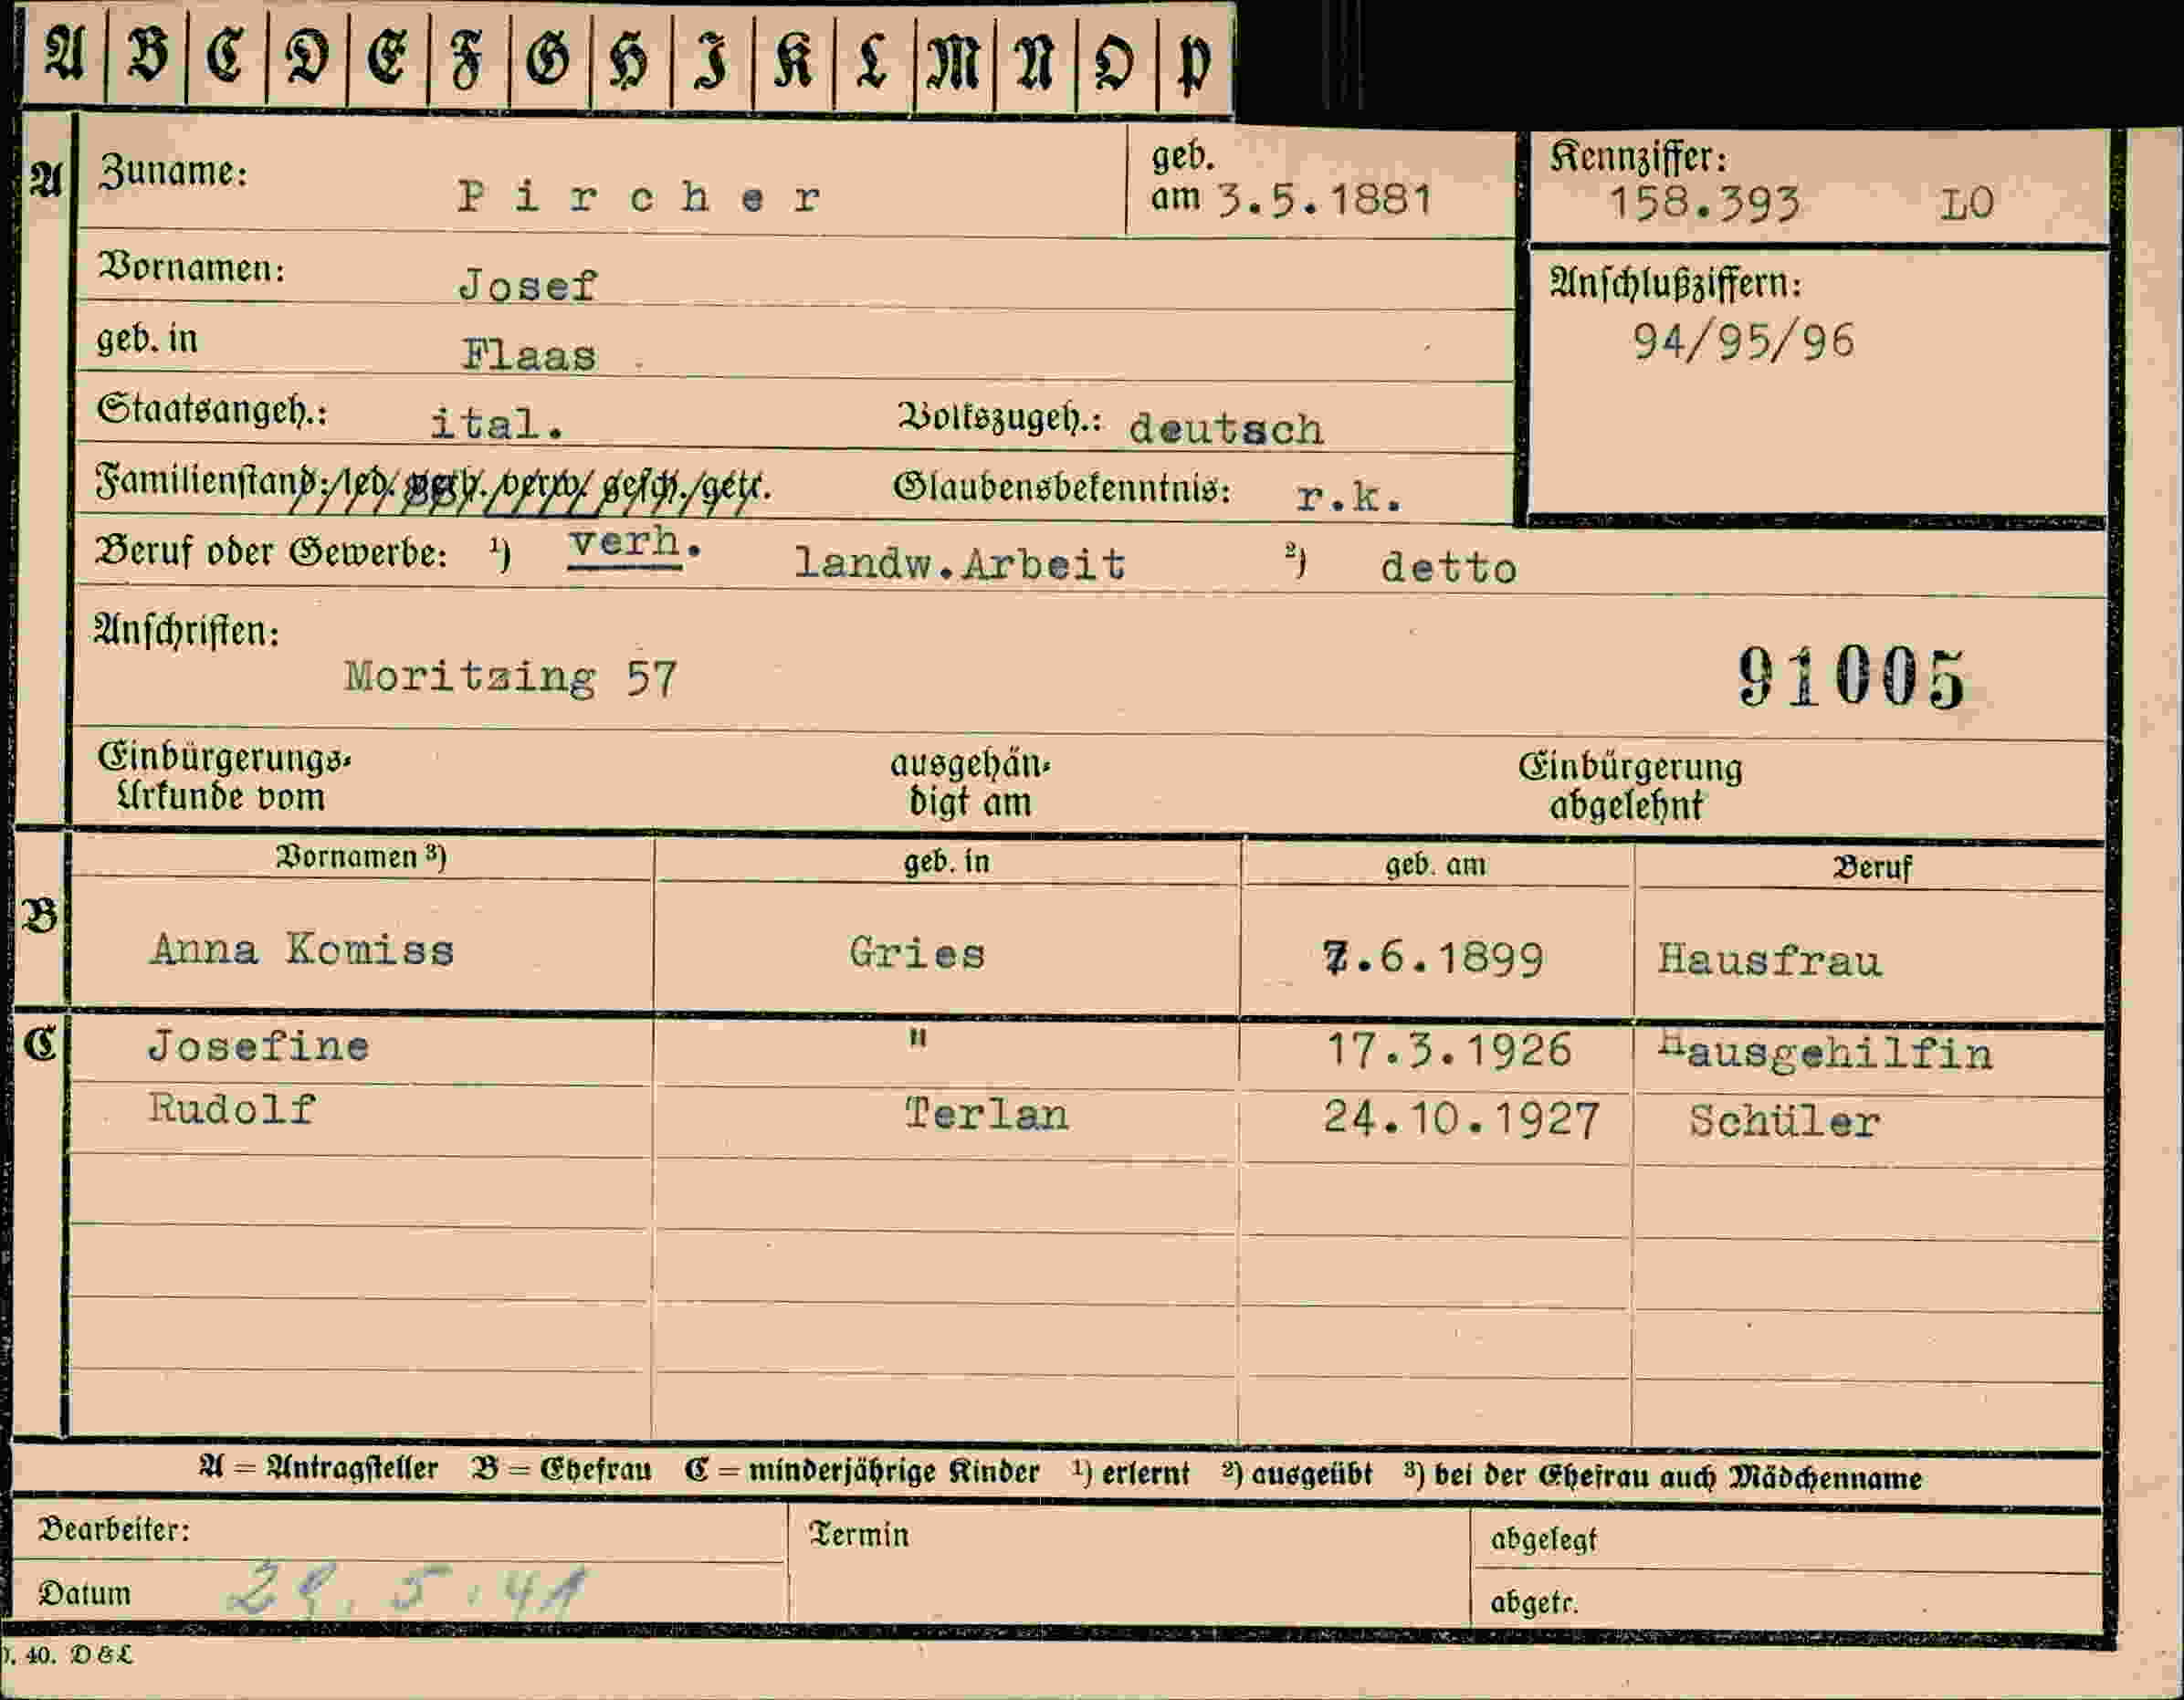 A B C D E F G H I K L M N O P
A Zuname: Pircher geb. am 3.5.1881 Kennziffer: 158.393 LO
Vornamen: Josef Anschlußziffern:
geb. in Flaas 94/95/96
Staatsangeh.: ital. Volkszugeh.: deutsch
Familienstand: led. verh. verw. gesch./getr. Glaubensbekenntnis: r.k.
Beruf oder Gewerbe: ¹) verh. landw.Arbeit ²) detto
Anschriften:
Moritzing 57 91005
Einbürgerungs- ausgehän- Einbürgerung
Urkunde vom digt am abgelehnt
Vornamen ³) geb. in geb. am Beruf
B Anna Komiss Gries 7.6.1899 Hausfrau
C Josefine " 17.3.1926 Hausgehilfin
Rudolf Terlan 24.10.1927 Schüler
A = Antragsteller B = Ehefrau C = minderjährige Kinder ¹) erlernt ²) ausgeübt ³) bei der Ehefrau auch Mädchenname
Bearbeiter: Termin abgelegt
Datum 29.5.41 abgetr.
40. D & L